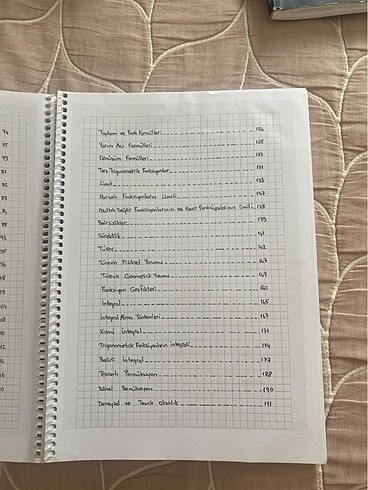 74
75
93
81
82
83
84
88
93
95
96
98
99
04
08
10
12
14
16
20
Toplam ve Fark Formülleri 124
Yarım Açı Formülleri 125
Dönüşüm Formülleri 127
Ters Trigonometrik Fonksiyonlar 131
Limit 133
Parçalı Fonksiyonların Limiti 137
Mutlak Değer Fonksiyonlarının ve Kesir Fonksiyonlarının Limiti 138
Belirsizlikler 139
Süreklilik 141
Türev 142
Türevin Fiziksel Yorumu 147
Türevin Geometrik Yorumu 149
Fonksiyon Grafikleri 160
İntegral 165
İntegral Alma Yöntemleri 167
Kısmi İntegral 171
Trigonometrik Fonksiyonların İntegrali 174
Belirli İntegral 177
Tekrarlı Permütasyon 188
Dönel Permütasyon 190
Deneysel ve Teorik Olasılık 191